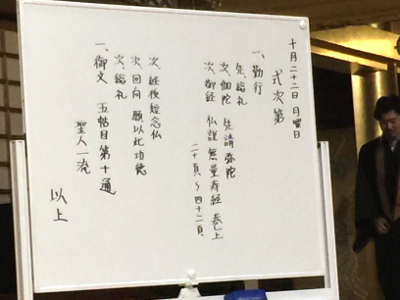 十月二十二日 月曜日
式次第
一、勤行
先、総礼
次、伽陀 先請弥陀
次、御経 仏説無量寿経 巻上
二十頁〜四十二頁
次、短念仏
次、回向 願以此功徳
次、総礼
一、御文 五帖目第十通
聖人一流
以上